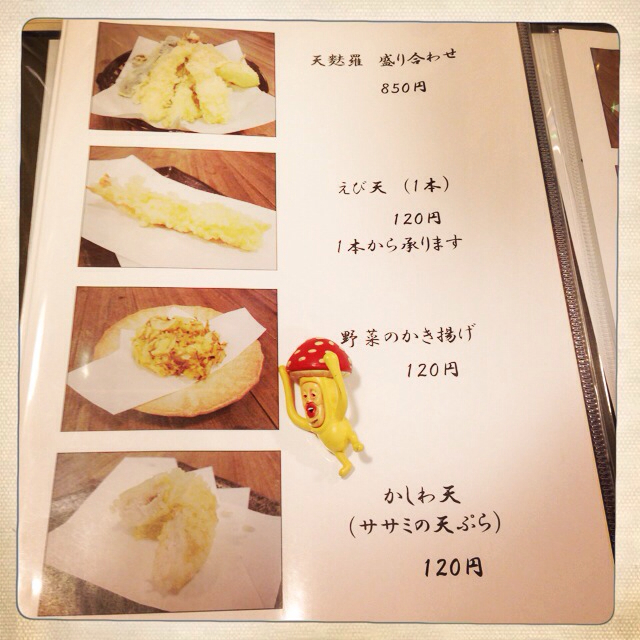 天麩羅 盛り合わせ
850円
えび天 (1本)
120円
1本から承ります
野菜のかき揚げ
120円
かしわ天
(ササミの天ぷら)
120円